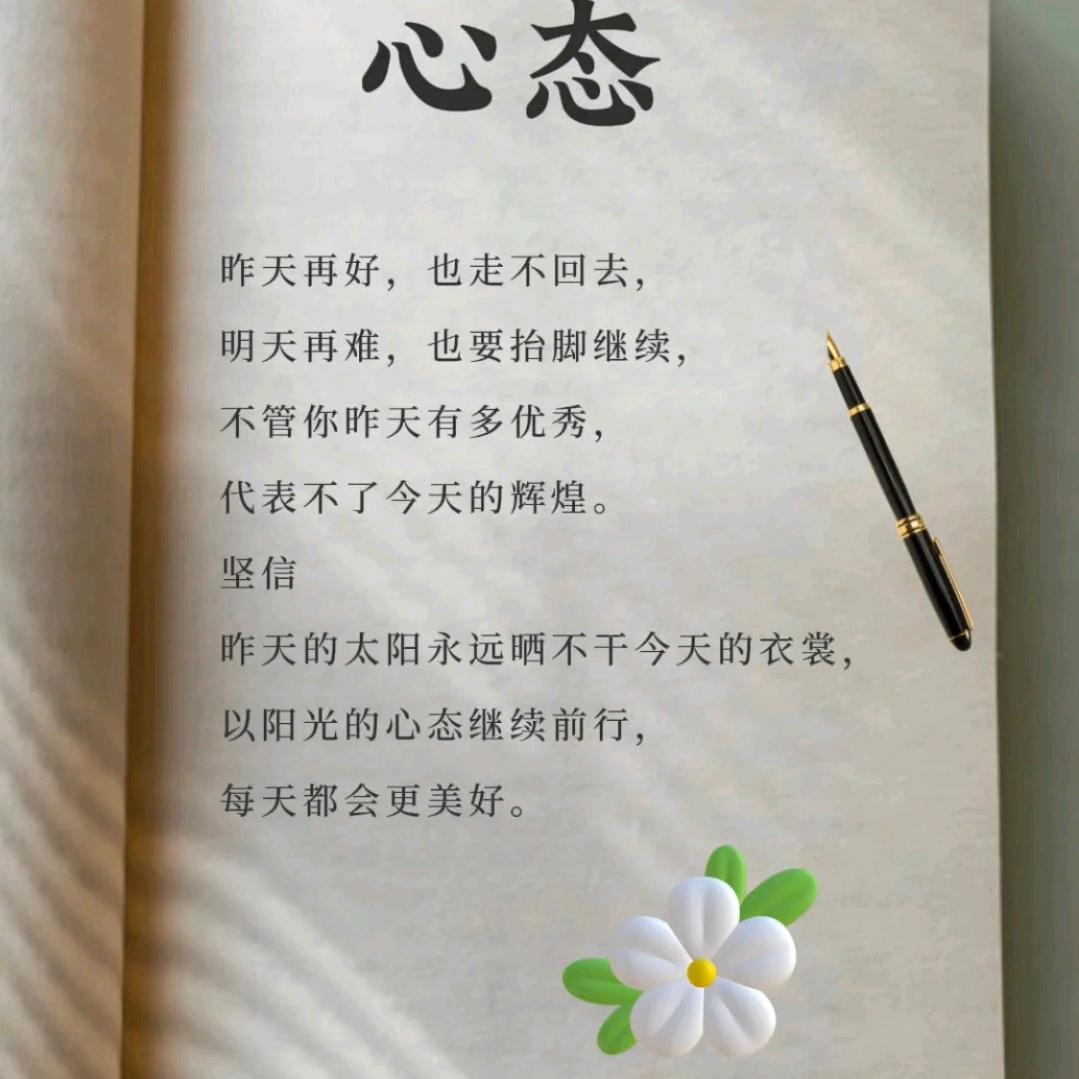 心态
昨天再好，也走不回去，
明天再难，也要抬脚继续，
不管你昨天有多优秀，
代表不了今天的辉煌。
坚信
昨天的太阳永远晒不干今天的衣裳，
以阳光的心态继续前行，
每天都会更美好。